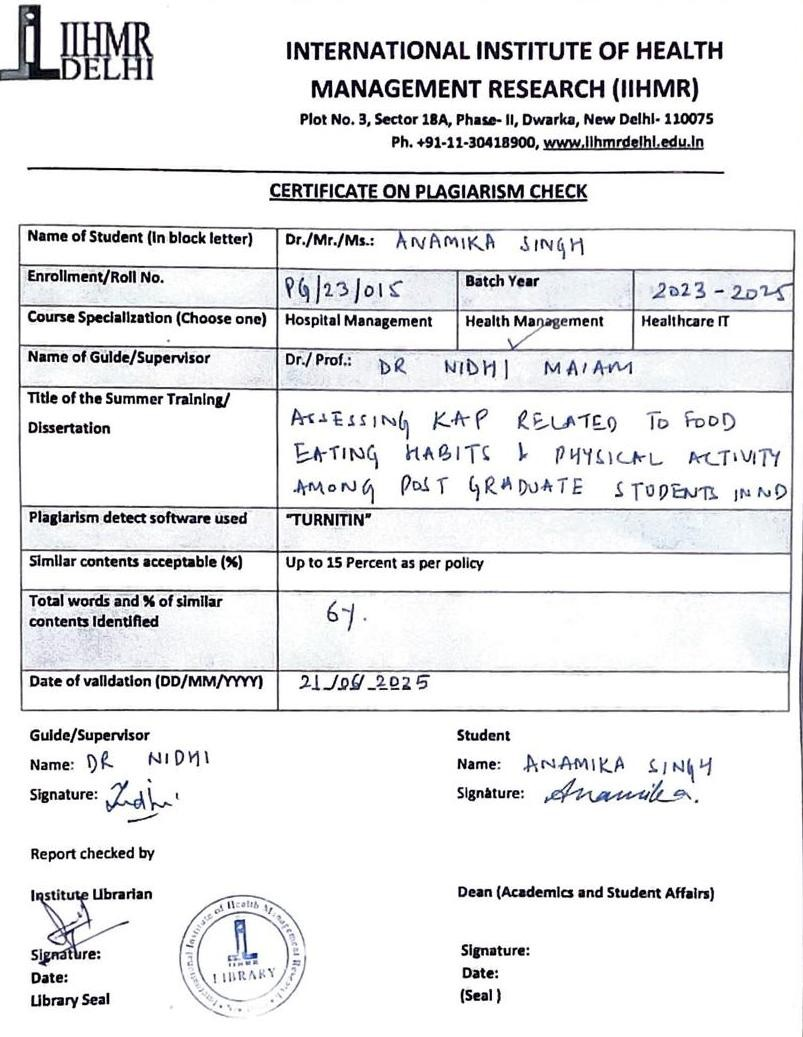 IIHMR
DELHI
INTERNATIONAL INSTITUTE OF HEALTH
MANAGEMENT RESEARCH (IIHMR)
Plot No. 3, Sector 18A, Phase- II, Dwarka, New Delhi- 110075
Ph. +91-11-30418900, www.iihmrdelhi.edu.in
CERTIFICATE ON PLAGIARISM CHECK
Name of Student (In block letter) Dr./Mr./Ms.: ANAMIKA SINGH
Enrollment/Roll No. PG/23/015 Batch Year 2023-2025
Course Specialization (Choose one) Hospital Management Health Management Healthcare IT
Name of Guide/Supervisor Dr./ Prof.: DR NIDHI
Title of the Summer Training/
Dissertation
ASSESSING KAP RELATED TO FOOD
EATING HABITS & PHYSICAL ACTIVITY
AMONG POST GRADUATE STUDENTS IN ND
Plagiarism detect software used "TURNITIN"
Similar contents acceptable (%) Up to 15 Percent as per policy
Total words and % of similar
contents Identified
6%.
Date of validation (DD/MM/YYYY) 21/06/2025
Guide/Supervisor
Name: DR NIDHI
Signature: Nidhi
Student
Name: ANAMIKA SINGH
Signature: Anamika.
Report checked by
Institute Librarian
Signature:
Date:
Library Seal
International Institute of Health Management Research
IIHMR
LIBRARY
Dean (Academics and Student Affairs)
Signature:
Date:
(Seal )